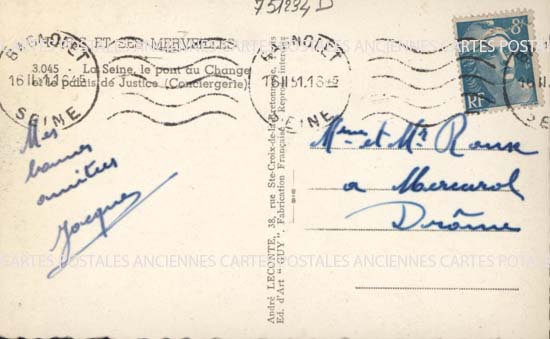 751234 D
PARIS ET SES MERVEILLES
3.045 - La Seine, le pont au Change
et le palais de Justice (Conciergerie)
BAGNOLET
16 II 51. 18 45
SEINE
BAGNOLET
16 II 51. 18 45
SEINE
8F
RF
Mes
bonnes
amitiés
Jacques
Mme et Mr Roux
a Mercurol
Drôme
André LECONTE, 38, rue Ste-Croix-de-la-Bretonnerie,
Ed. d'Art "GUY", Fabrication Française - Reproduction interdite
CARTES POSTALES ANCIENNES CARTES POSTALES ANCIENNES CARTES POSTALES